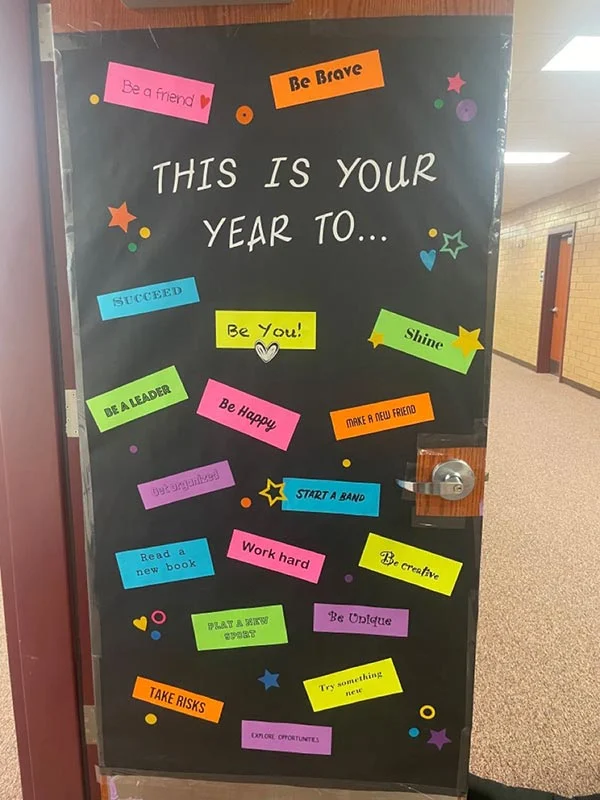 Be a friend
Be Brave
THIS IS YOUR
YEAR TO...
SUCCEED
Be You!
Shine
BE A LEADER
Be Happy
MAKE A NEW FRIEND
Get organized
START A BAND
Read a
new book
Work hard
Be creative
PLAY A NEW
SPORT
Be Unique
TAKE RISKS
Try something
new
EXPLORE OPPORTUNITIES